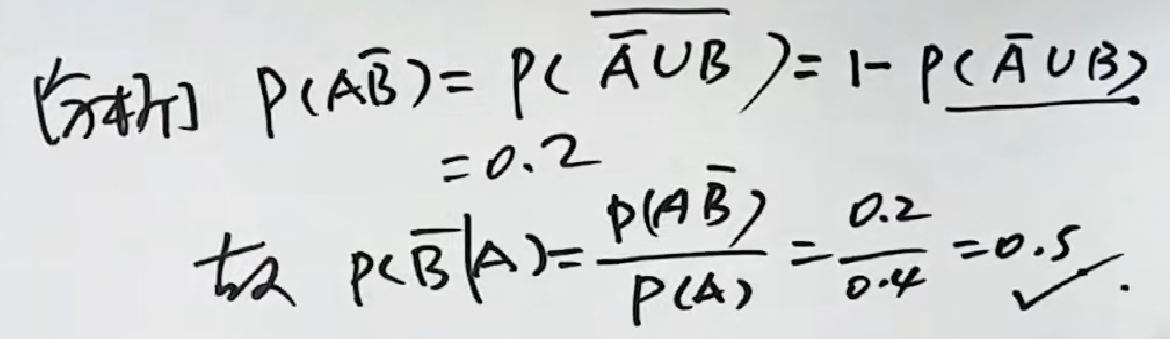 [分析] P(AB̄) = P( \overline{Ā∪B} ) = 1 - P(Ā∪B)
= 0.2
故 P(B̄|A) = \frac{P(AB̄)}{P(A)} = \frac{0.2}{0.4} = 0.5 ✓.